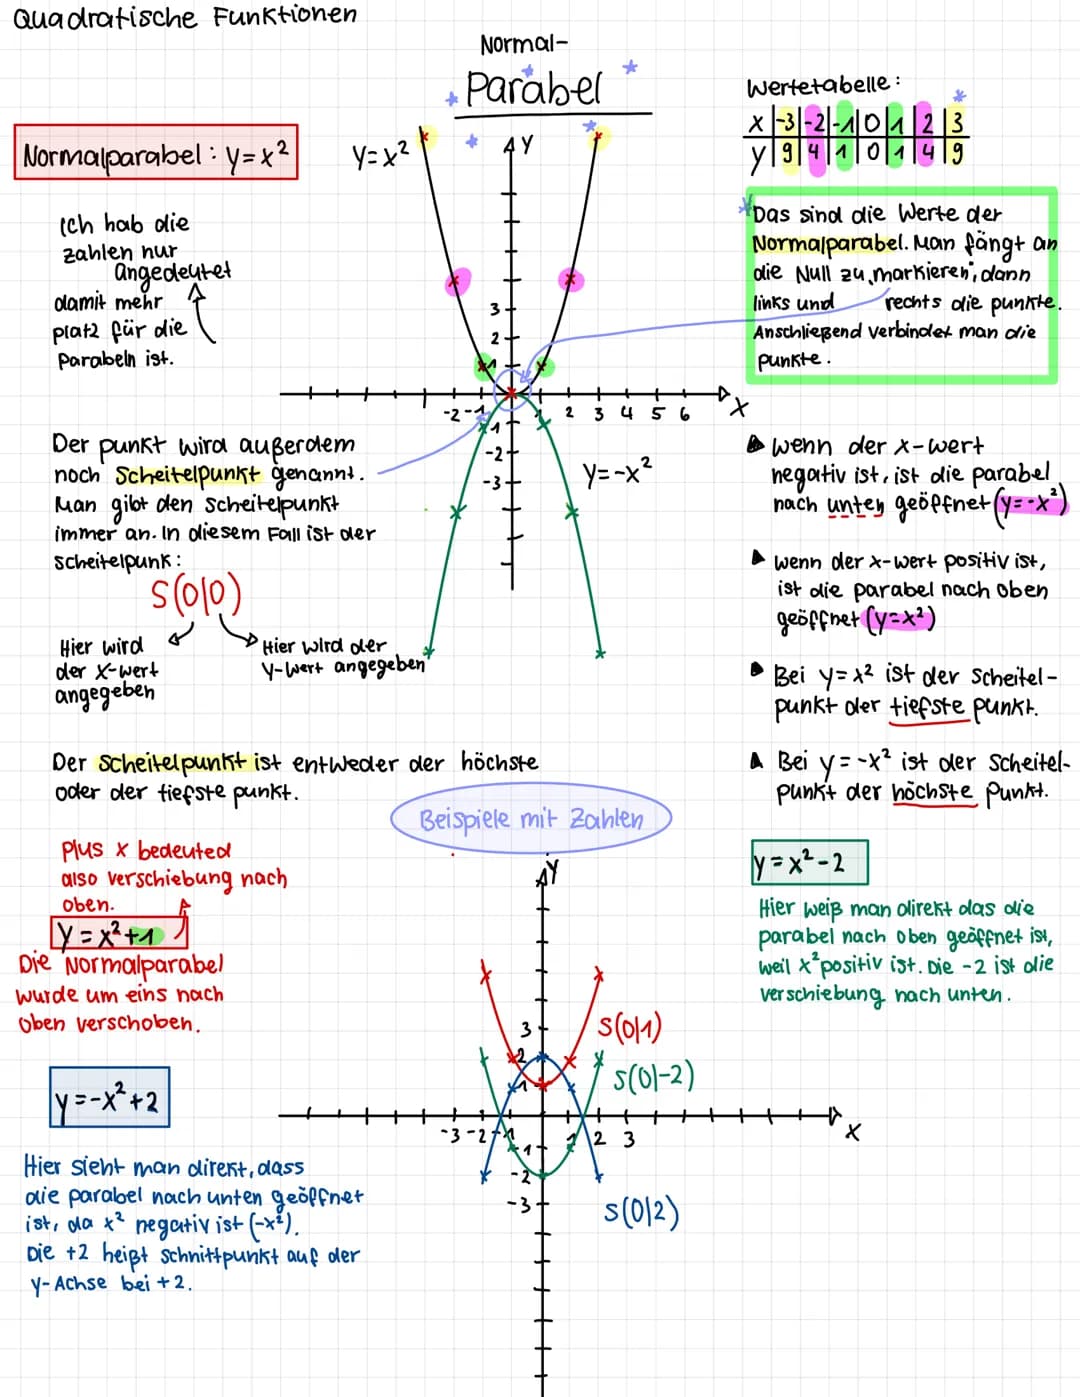 Quadratische Funktionen
Normal-
Parabel
Normalparabel: y=x²
y=x²
Y
Wertetabelle:
x |-3|-2|-1|0|1|2|3
y |9|4|1|0|1|4|9
Ich hab die
zahlen nur
angedeutet
damit mehr
platz für die
Parabeln ist.
Das sind die Werte der
Normalparabel. Man fängt an
die Null zu markieren, dann
links und rechts die punkte.
Anschließend verbindet man die
punkte.
3
2
1
-2 -1 1 2 3 4 5 6
X
-1
-2
-3
y=-x²
Der punkt wird außerdem
noch Scheitelpunkt genannt.
Man gibt den Scheitelpunkt
immer an. In diesem Fall ist der
scheitelpunk:
S(0|0)
Hier wird
der x-wert
angegeben
Hier wird der
y-wert angegeben
wenn der x-wert
negativ ist, ist die parabel
nach unten geöffnet (y=-x²)
wenn der x-wert positiv ist,
ist die parabel nach oben
geöffnet (y=x²)
Bei y=x² ist der Scheitel-
punkt der tiefste punkt.
Bei y=-x² ist der Scheitel-
punkt der höchste Punkt.
Der Scheitelpunkt ist entweder der höchste
oder der tiefste punkt.
Beispiele mit Zahlen
Plus x bedeuted
also verschiebung nach
oben.
y=x²+1
Die Normalparabel
wurde um eins nach
oben verschoben.
y=x²-2
Hier weiß man direkt das die
parabel nach oben geöffnet ist,
weil x² positiv ist. Die -2 ist die
verschiebung nach unten.
y=-x²+2
Hier sieht man direkt, dass
die parabel nach unten geöffnet
ist, da x² negativ ist (-x²).
Die +2 heißt Schnittpunkt auf der
y-Achse bei +2.
Y
3
2
1
S(0|1)
S(0|-2)
-3 -2 -1 1 2 3
X
-1
-2
-3
S(0|2)